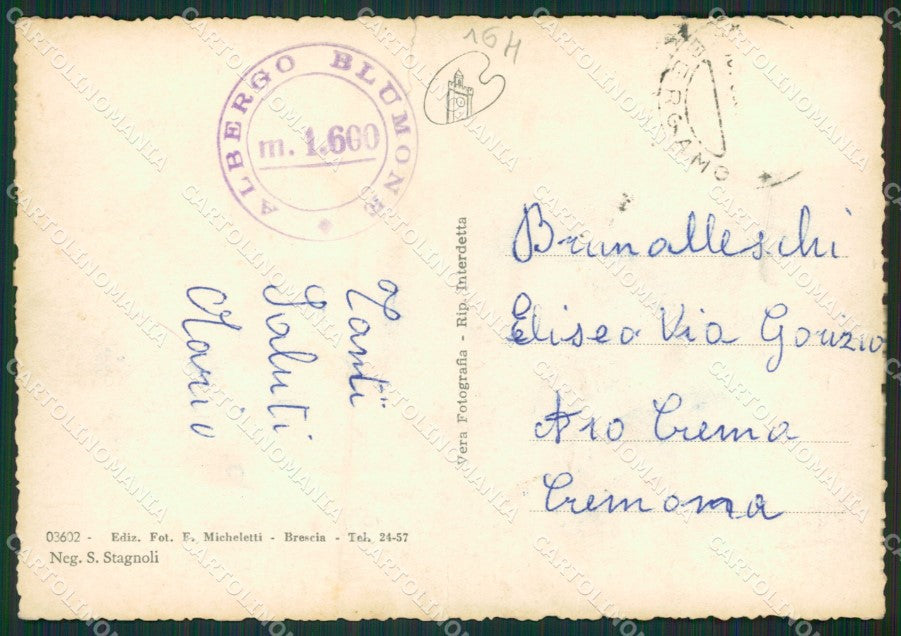 ALBERGO BLUMONE
m. 1.600
16H
BERGAMO
Tanti
Saluti
Mario
Vera Fotografia - Rip. Interdetta
Brunalleschi
Eliseo Via Gorizia
N10 Crema
Cremona
03602 - Ediz. Fot. F. Micheletti - Brescia - Tel. 24-57
Neg. S. Stagnoli
CARTOLINOMANIA